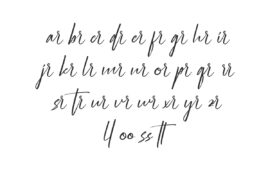 ar br cr dr er fr gr hr ir
jr kr lr mr nr or pr qr rr
sr tr ur vr wr xr yr zr
ll oo ss tt